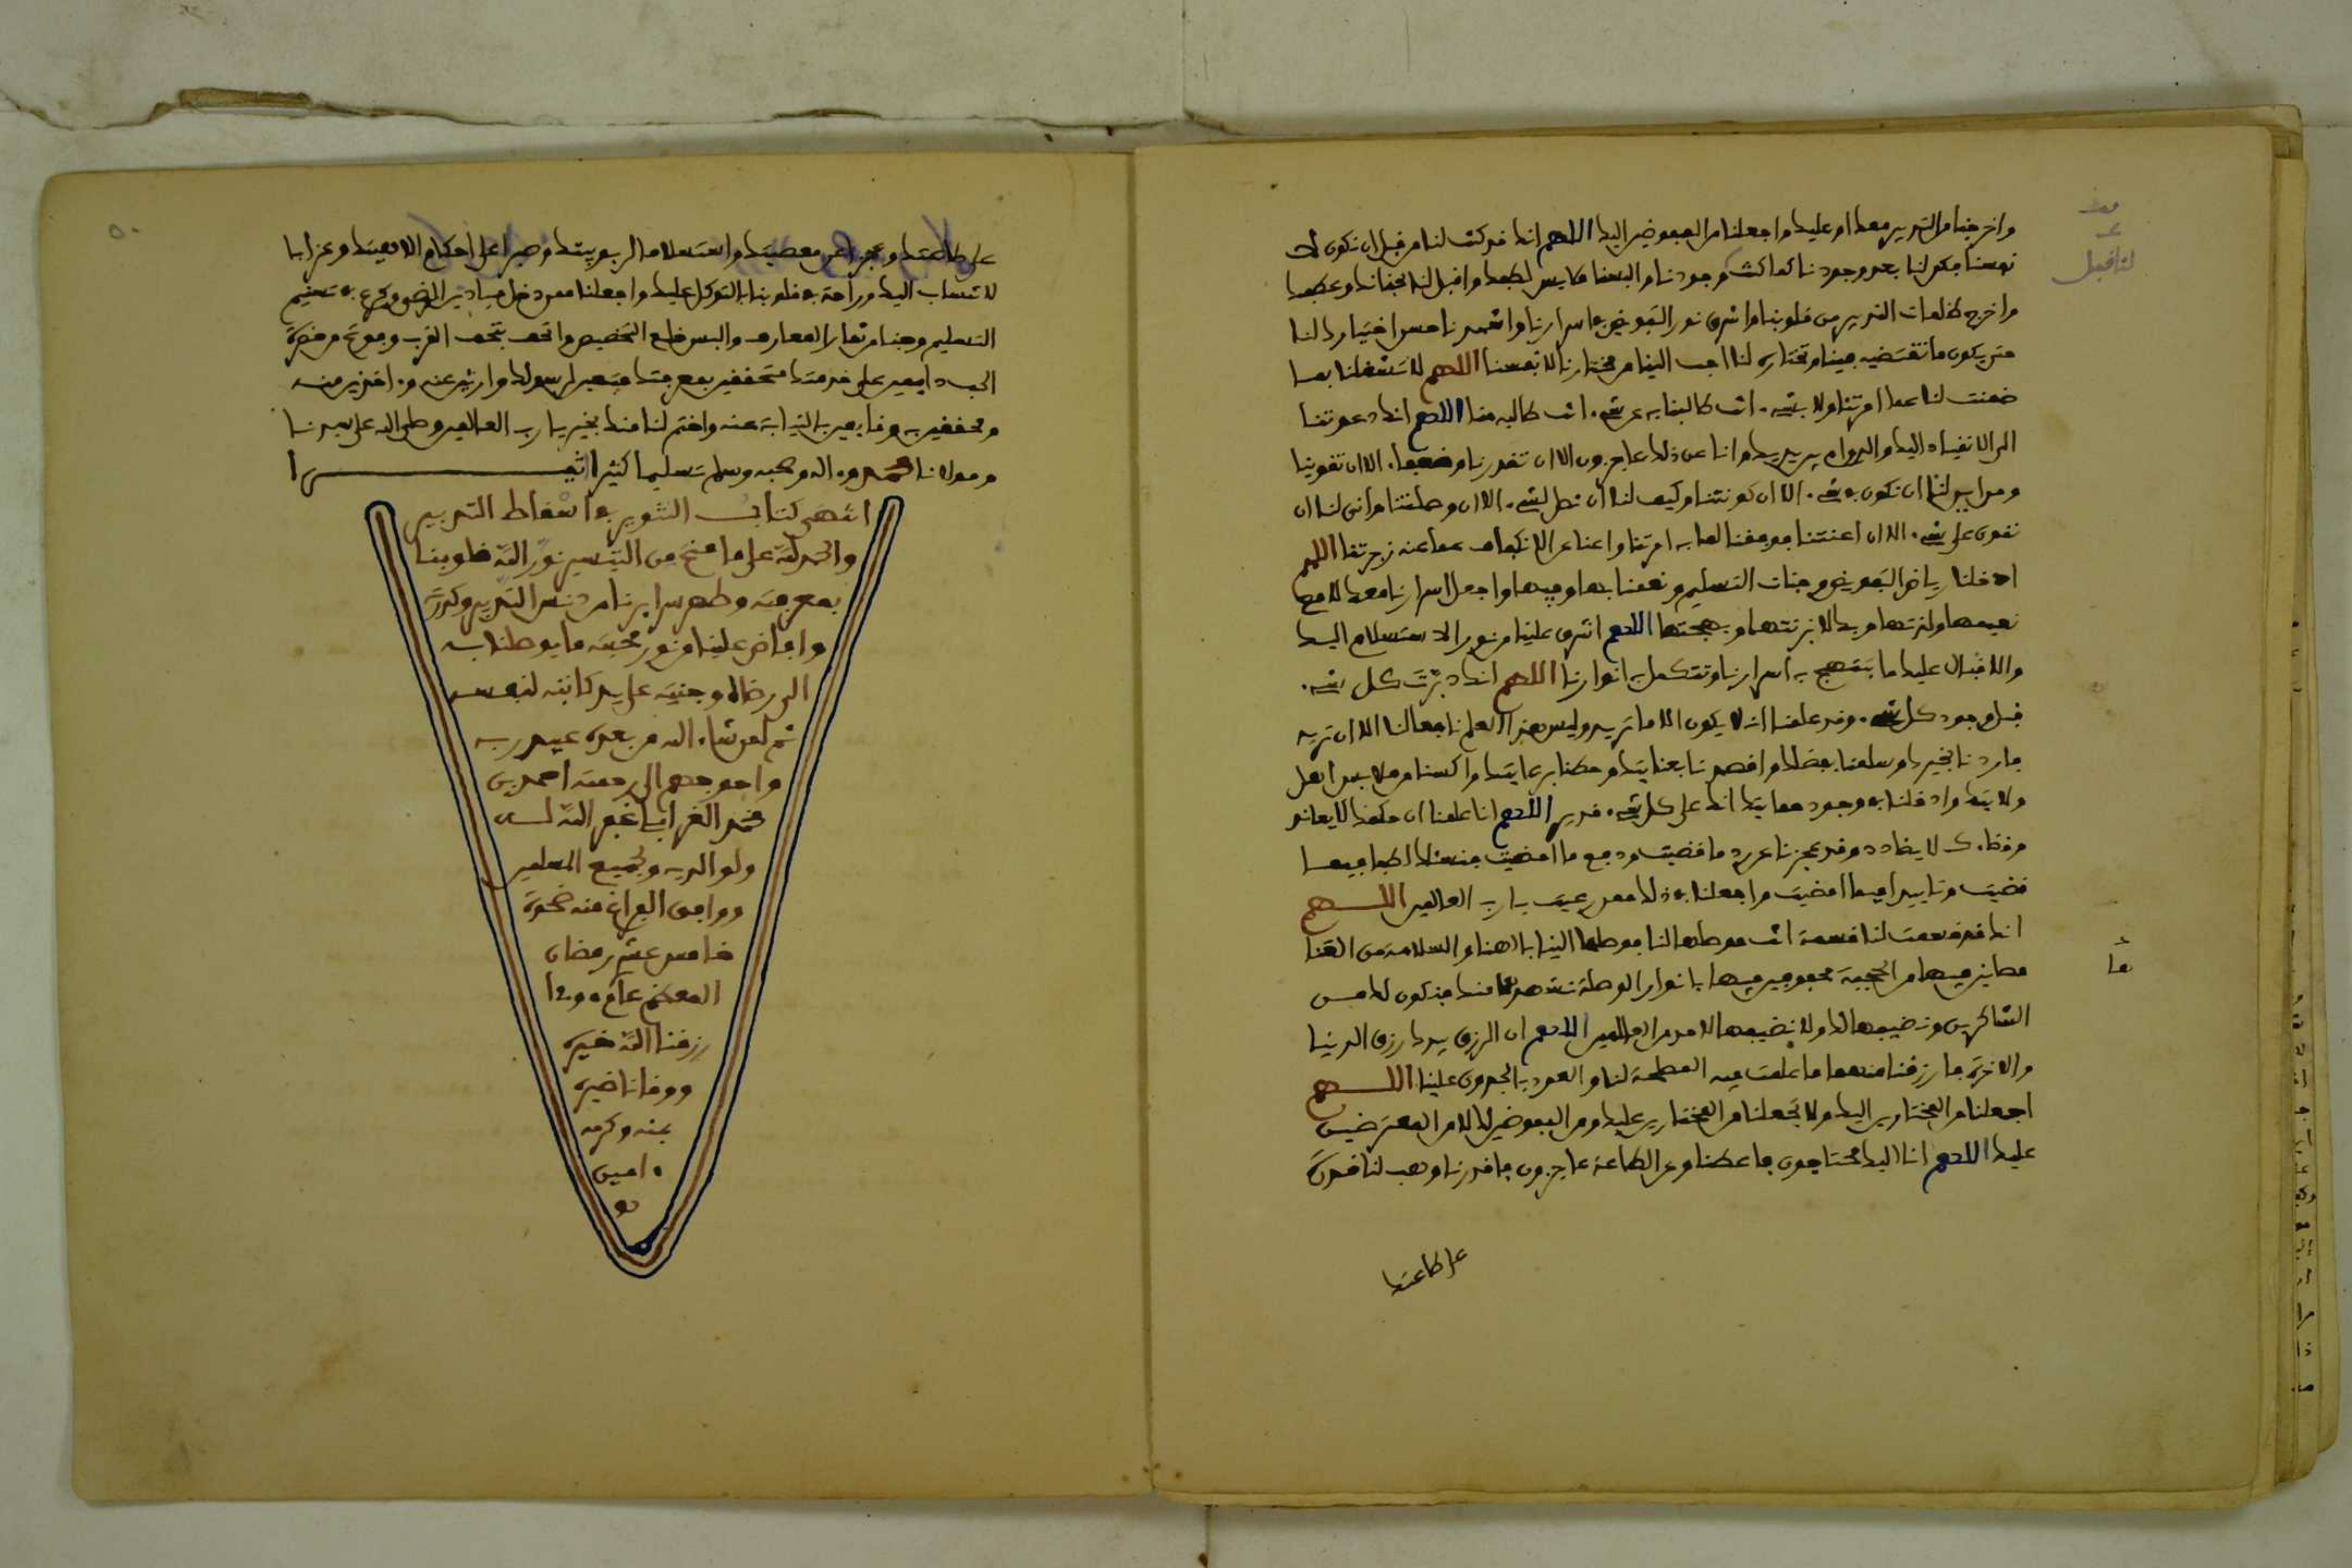 واخرجنا من التدبير معك او عليك واجعلنا من المفوضين اليك اللهم انك قد كنت لنا من قبل ان نكون لا
نفسنا فكن لنا بعد وجودنا كما كنت وجودنا والبسنا ملابس لطفك واقبل لنا بحنانك وعطفك
واخرج ظلمات التدبير من قلوبنا واشرق نور التفويض في اسرارنا واشهدنا حسن اختيارك لنا
حتى يكون ما تقتضيه فينا وتختاره لنا احب الينا من مختارنا لانفسنا اللهم لا تشغلنا بما
ضمنت لنا عما امرتنا ولا بشيء انت طالبنا به عن شيء انت طالبه منا اللهم انك دعوتنا
الى الانقياد اليك والدوام بين يديك وانا عن ذلك عاجزون الا ان تقدرنا وضعفاء الا ان تقوينا
ومن اين لنا ان نكون في شيء الا ان كونتنا وكيف لنا ان نصل لشيء الا ان وصلتنا وانى لنا ان
نقوى على شيء الا ان اعنتنا فوفقنا لما به امرتنا واعنا على الانكفاف عما عنه زجرتنا اللهم
ادخلنا رياض التفويض وجنات التسليم ونعمنا بها وفيها واجعل اسرارنا معك لا مع
نعيمها ولذتها وبك لا بزينتها وبهجتها اللهم اشرق علينا من نور الاستسلام اليك
والاقبال عليك ما تبتهج به اسرارنا وتتكمل به انوارنا اللهم انك دبرت كل شيء
قبل وجود كل شيء وقد علمنا انه لا يكون الا ما تريد وليس هذا العلم نافعا لنا الا ان تريد
فاردنا بخيرك وسلمنا بفضلك واقصدنا بعنايتك وحطنا برعايتك واكسنا من ملابس اهل
ولايتك وادخلنا في وجود حمايتك انك على كل شيء قدير اللهم انا علمنا ان حكمك لا يعاند
وقضاءك لا يضادد وقد عجزنا عن رد ما قضيت ودفع ما امضيت فنسئلك لطفا فيما
قضيت وتاييدا فيما امضيت واجعلنا في ذلك ممن رعيت يا رب العالمين اللهم
انك قد قسمت لنا قسمة انت موصلها لنا فوصلها الينا بالهنا والسلامة من العنا
مصانين فيها من الحجبة محفوفين فيها بانوار الوصلة نشهدها منك فنكون لك من
الشاكرين ونضيفها لك ولا نضيفها لاحد من العالمين اللهم ان الرزق بيدك رزق الدنيا
والاخرة فارزقنا منهما ما علمت فيه المصلحة لنا والعود بالجدوى علينا اللهم
اجعلنا من المختارين اليك ولا تجعلنا من المختارين عليك ومن المفوضين لك لا من المعترضين
عليك اللهم انا اليك محتاجون فاعطنا وعن الطاعة عاجزون فاقدرنا وهب لنا قدرة
على طاعتك
على طاعتك وعجزا عن معصيتك واستسلاما لربوبيتك وصبرا على احكام الاهيتك وعزا با
لانتساب اليك وراحة في قلوبنا بالتوكل عليك واجعلنا ممن دخل ميادين الرضى وكرع في تسنيم
التسليم وجنا من ثمار المعارف والبس خلع التخصيص واتحف بتحف القرب وفوتح من حضرة
الحب دايمين على خدمتك متحققين بمعرفتك متبعين لرسولك وارثين عنه واخذين منه
ومحققين به وقايمين بالنيابة عنه واختم لنا منك بخير يا رب العالمين وصلى الله على سيدنا
ومولانا محمد وءاله وصحبه وسلم تسليما كثيرا اثيرا
انتهى كتاب التنوير في اسقاط التدبير
والحمد لله على ما منح من التيسير نور الله قلوبنا
بمعرفته وطهر سرايرنا من دنس التدبير وكدرته
وافاض علينا من نور محبته ما يوصلنا به
الى رضاه وجنته على يد كاتبه لنفسه
ثم لمن شاء الله من بعده عبيد ربه
واحوجهم الى رحمته احمد بن
محمد الغرابي غفر الله له
ولوالديه ولجميع المسلمين
ووافق الفراغ منه ضحوة
خامس عشر رمضان
المعظم عام
رزقنا الله خيره
ووقانا ضيره
بمنه وكرمه
ءامين